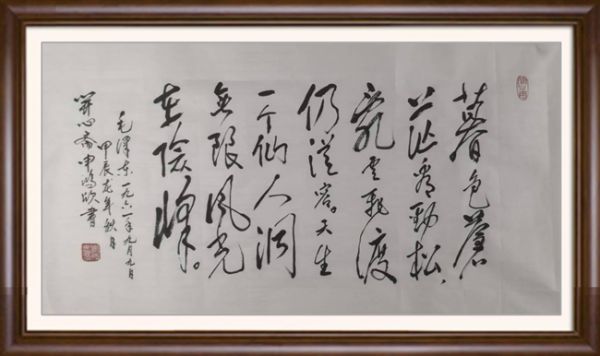 暮色蒼
茫看勁松,
亂雲飛渡
仍從容。天生
一个仙人洞
無限風光
在險峰。
毛澤东一九六一年九月九日
甲辰龙年秋月
開心斋申鴻欣書